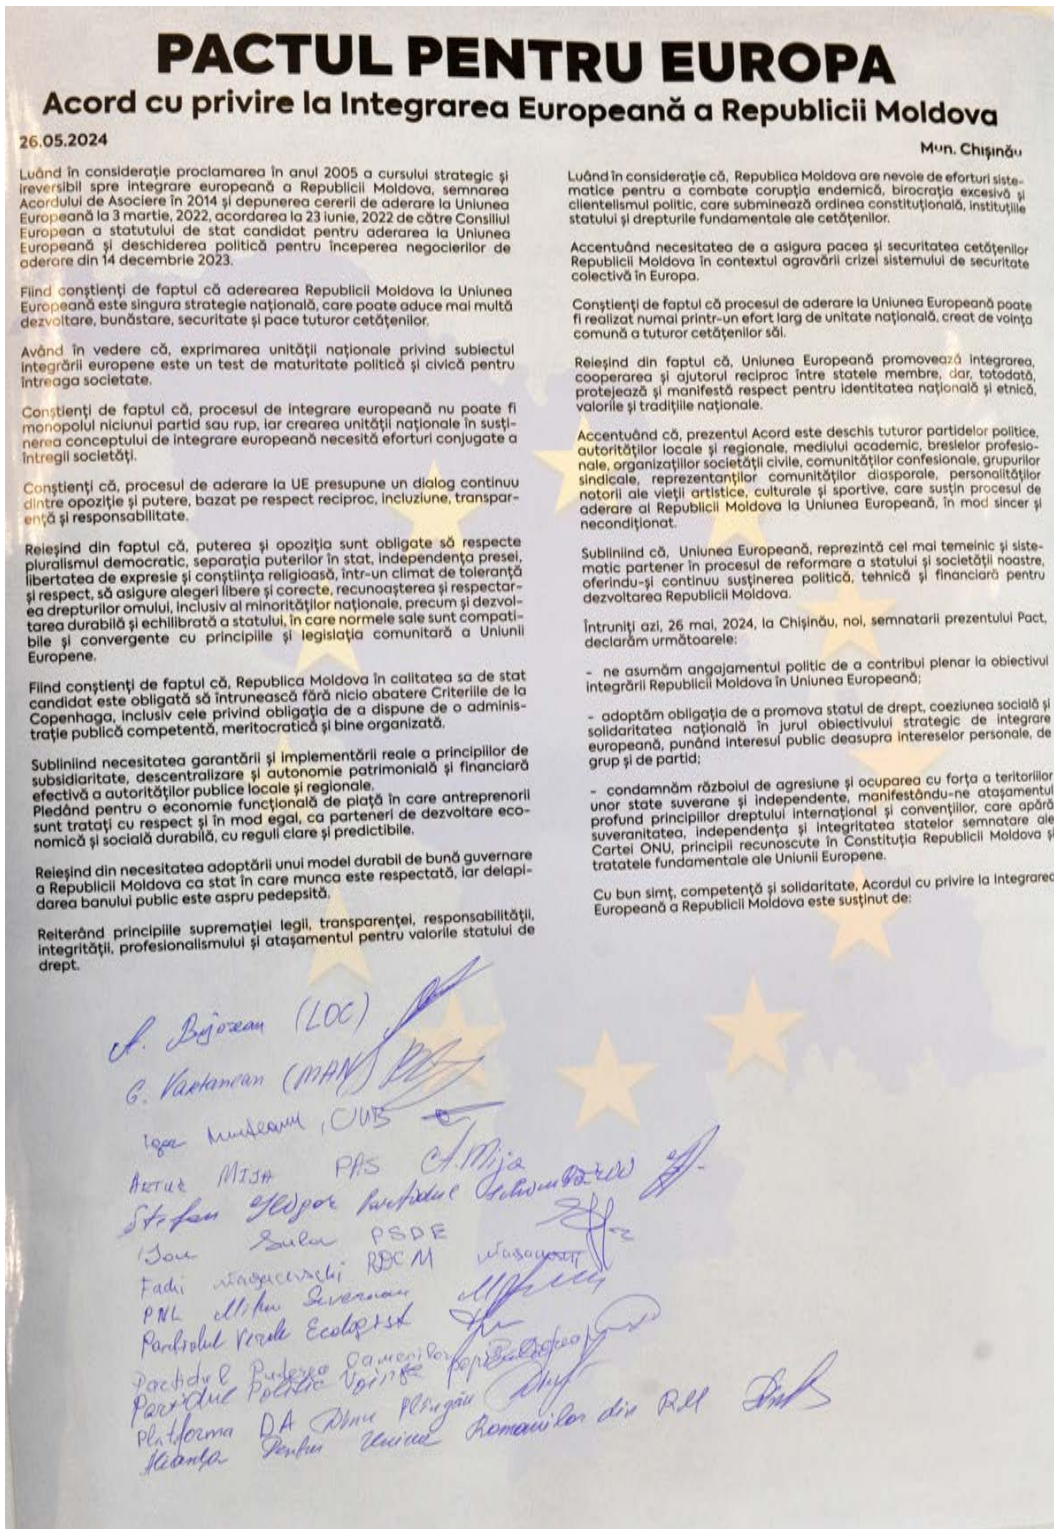 PACTUL PENTRU EUROPA
Acord cu privire la Integrarea Europeană a Republicii Moldova
26.05.2024
Mun. Chișinău
Luând în considerație proclamarea în anul 2005 a cursului strategic și
ireversibil spre integrare europeană a Republicii Moldova, semnarea
Acordului de Asociere în 2014 și depunerea cererii de aderare la Uniunea
Europeană la 3 martie, 2022, acordarea la 23 iunie, 2022 de către Consiliul
European a statutului de stat candidat pentru aderarea la Uniunea
Europeană și deschiderea politică pentru începerea negocierilor de
aderare din 14 decembrie 2023.
Fiind conștienți de faptul că aderearea Republicii Moldova la Uniunea
Europeană este singura strategie națională, care poate aduce mai multă
dezvoltare, bunăstare, securitate și pace tuturor cetățenilor.
Având în vedere că, exprimarea unității naționale privind subiectul
integrării europene este un test de maturitate politică și civică pentru
întreaga societate.
Conștienți de faptul că, procesul de integrare europeană nu poate fi
monopolul niciunui partid sau rup, iar crearea unității naționale în susți-
nerea conceptului de integrare europeană necesită eforturi conjugate a
întregii societăți.
Conștienți că, procesul de aderare la UE presupune un dialog continuu
dintre opoziție și putere, bazat pe respect reciproc, incluziune, transpar-
ență și responsabilitate.
Reieșind din faptul că, puterea și opoziția sunt obligate să respecte
pluralismul democratic, separația puterilor în stat, independența presei,
libertatea de expresie și conștiința religioasă, într-un climat de toleranță
și respect, să asigure alegeri libere și corecte, recunoașterea și respectar-
ea drepturilor omului, inclusiv al minorităților naționale, precum și dezvol-
tarea durabilă și echilibrată a statului, în care normele sale sunt compati-
bile și convergente cu principiile și legislația comunitară a Uniunii
Europene.
Fiind conștienți de faptul că, Republica Moldova în calitatea sa de stat
candidat este obligată să întrunească fără nicio abatere Criteriile de la
Copenhaga, inclusiv cele privind obligația de a dispune de o adminis-
trație publică competentă, meritocratică și bine organizată.
Subliniind necesitatea garantării și implementării reale a principiilor de
subsidiaritate, descentralizare și autonomie patrimonială și financiară
efectivă a autorităților publice locale și regionale.
Pledând pentru o economie funcțională de piață în care antreprenorii
sunt tratați cu respect și în mod egal, ca parteneri de dezvoltare eco-
nomică și socială durabilă, cu reguli clare și predictibile.
Reieșind din necesitatea adoptării unui model durabil de bună guvernare
a Republicii Moldova ca stat în care munca este respectată, iar delapi-
darea banului public este aspru pedepsită.
Reiterând principiile supremației legii, transparenței, responsabilității,
integrității, profesionalismului și atașamentul pentru valorile statului de
drept.
Luând în considerație că, Republica Moldova are nevoie de eforturi siste-
matice pentru a combate corupția endemică, birocrația excesivă și
clientelismul politic, care subminează ordinea constituțională, instituțiile
statului și drepturile fundamentale ale cetățenilor.
Accentuând necesitatea de a asigura pacea și securitatea cetățenilor
Republicii Moldova în contextul agravării crizei sistemului de securitate
colectivă în Europa.
Conștienți de faptul că procesul de aderare la Uniunea Europeană poate
fi realizat numai printr-un efort larg de unitate națională, creat de voința
comună a tuturor cetățenilor săi.
Reieșind din faptul că, Uniunea Europeană promovează integrarea,
cooperarea și ajutorul reciproc între statele membre, dar, totodată,
protejează și manifestă respect pentru identitatea națională și etnică,
valorile și tradițiile naționale.
Accentuând că, prezentul Acord este deschis tuturor partidelor politice,
autorităților locale și regionale, mediului academic, breslelor profesio-
nale, organizațiilor societății civile, comunităților confesionale, grupurilor
sindicale, reprezentanților comunităților diasporale, personalităților
notorii ale vieții artistice, culturale și sportive, care susțin procesul de
aderare al Republicii Moldova la Uniunea Europeană, în mod sincer și
necondiționat.
Subliniind că, Uniunea Europeană, reprezintă cel mai temeinic și siste-
matic partener în procesul de reformare a statului și societății noastre,
oferindu-și continuu susținerea politică, tehnică și financiară pentru
dezvoltarea Republicii Moldova.
Întruniți azi, 26 mai, 2024, la Chișinău, noi, semnatarii prezentului Pact,
declarăm următoarele:
- ne asumăm angajamentul politic de a contribui plenar la obiectivul
integrării Republicii Moldova în Uniunea Europeană;
- adoptăm obligația de a promova statul de drept, coeziunea socială și
solidaritatea națională în jurul obiectivului strategic de integrare
europeană, punând interesul public deasupra intereselor personale, de
grup și de partid;
- condamnăm războiul de agresiune și ocuparea cu forța a teritoriilor
unor state suverane și independente, manifestându-ne atașamentul
profund principiilor dreptului internațional și convențiilor, care apără
suveranitatea, independența și integritatea statelor semnatare ale
Cartei ONU, principii recunoscute în Constituția Republicii Moldova și
tratatele fundamentale ale Uniunii Europene.
Cu bun simț, competență și solidaritate, Acordul cu privire la Integrarea
Europeană a Republicii Moldova este susținut de:
A. Bujorean (LOC)
G. Vartanean (MAN)
Igor Munteanu, CUB
Artur MIJA PAS A. Mija
Stefan Partidul
Ion Sula PSDE
Fadei Nagacevschi RDCM Nagacevschi
PNL Mihai Severovan
Partidul Verde Ecologist
Partidul Puterea Oamenilor
Partidul Politic Voința poporului
Platforma DA Dinu Plîngău
Alianța Pentru Unirea Romanilor din RM